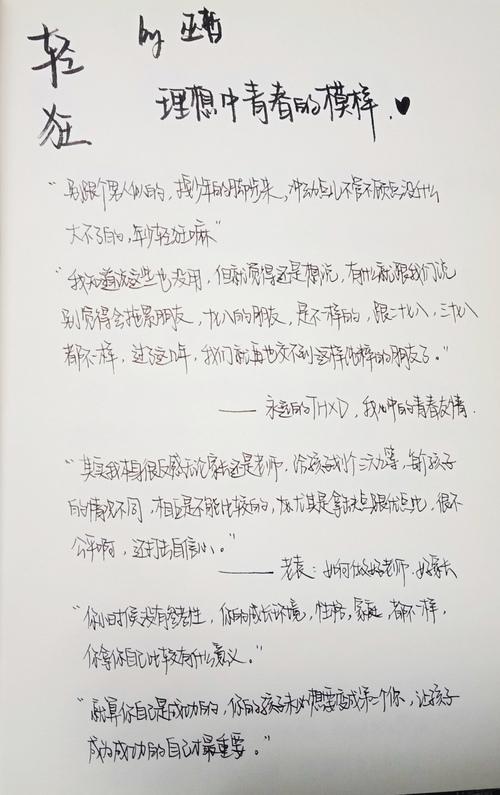 轻狂
by 巫哲
理想中青春的模样.♥
“别跟个男人似的,按少年的脚步来,冲动点儿不管不顾点没什么
大不了的,年少轻狂嘛”
“我知道说这些也没用,但就觉得还是想说,有什么就跟我们说
别觉得会拖累朋友,十七八的朋友,是不一样的,跟二十七八,三十七八
都不一样,过了这几年,我们就再也交不到这样的朋友了。”
—— 永远的THXD,我心中的青春友情.
“其实我本身很反感无论家长还是老师,给孩子划个三六九等,每个孩子
的情况不同,相互是不能比较的,尤其是拿缺点跟优点比,很不
公平啊,还打击自信心。”
—— 老袁:如何做好老师,好家长
“你小时候没有参考性,你的成长环境,性格,家庭,都不一样,
你拿你自己比较有什么意义。”
“就算你自己是成功的,你的孩子未必想要变成第二个你,让孩子
成为成功的自己才最重要。”